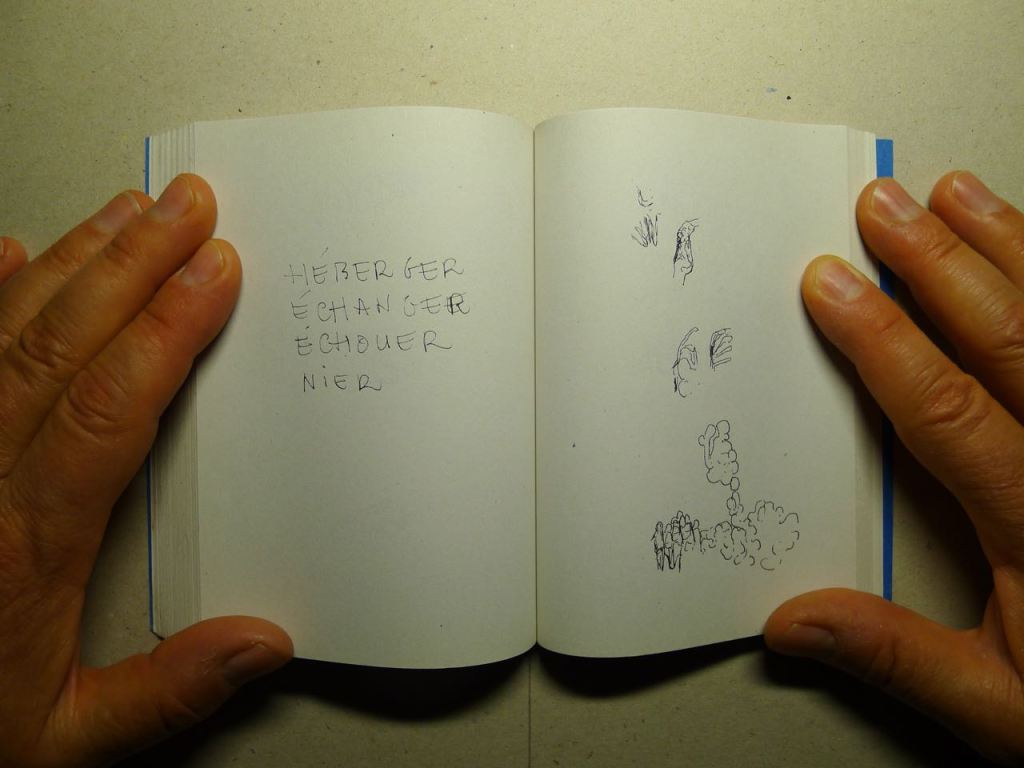 HÉBERGER
ÉCHANGER
ÉCHOUER
NIER